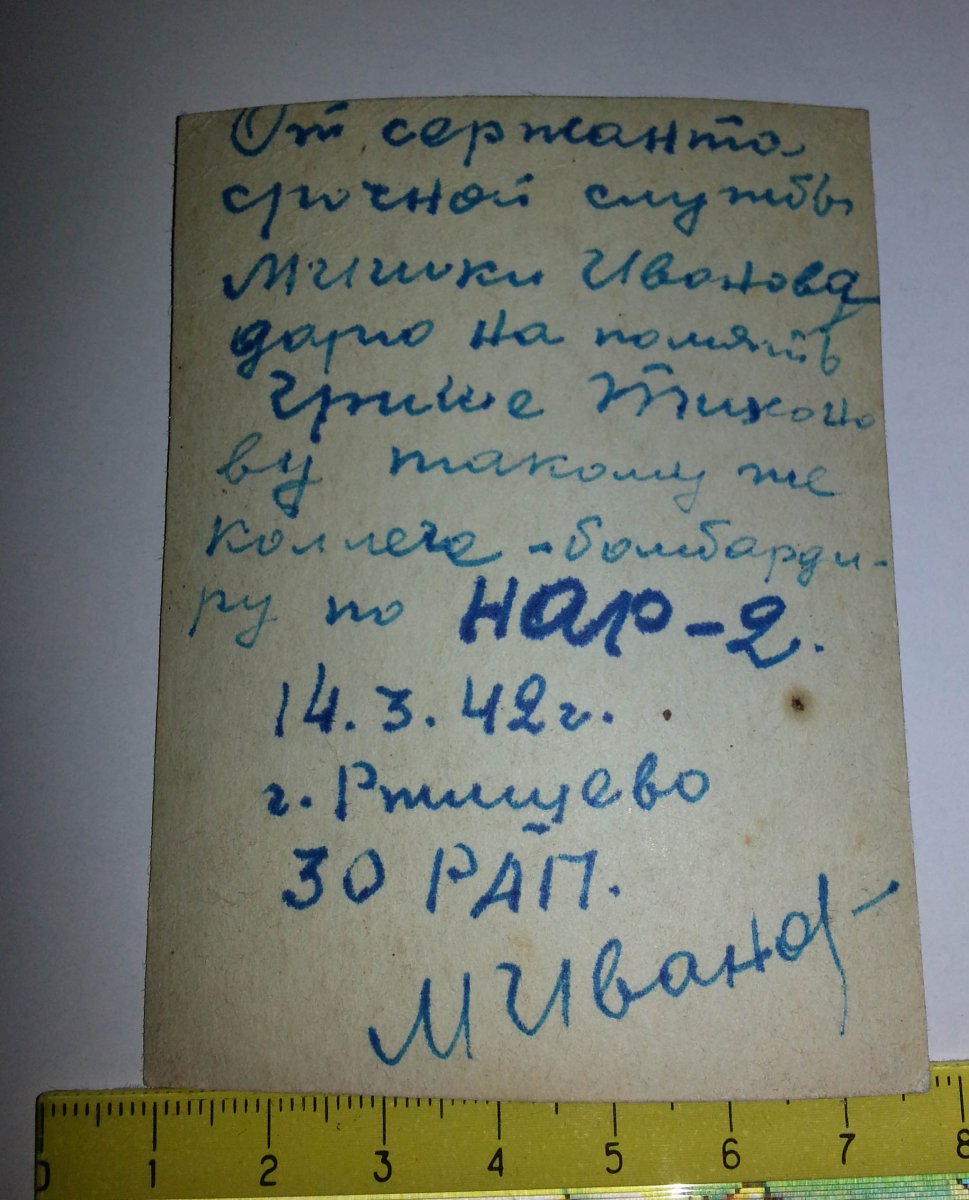 От сержанта
срочной службы
Мишки Иванова
дарю на память
Грише Тихоно
ву такому же
коллеге-бомбарди-
ру по НАР-2.
14.3.42г.
г. Ртищево
30 РАП.
МИванов
0 1 2 3 4 5 6 7 8